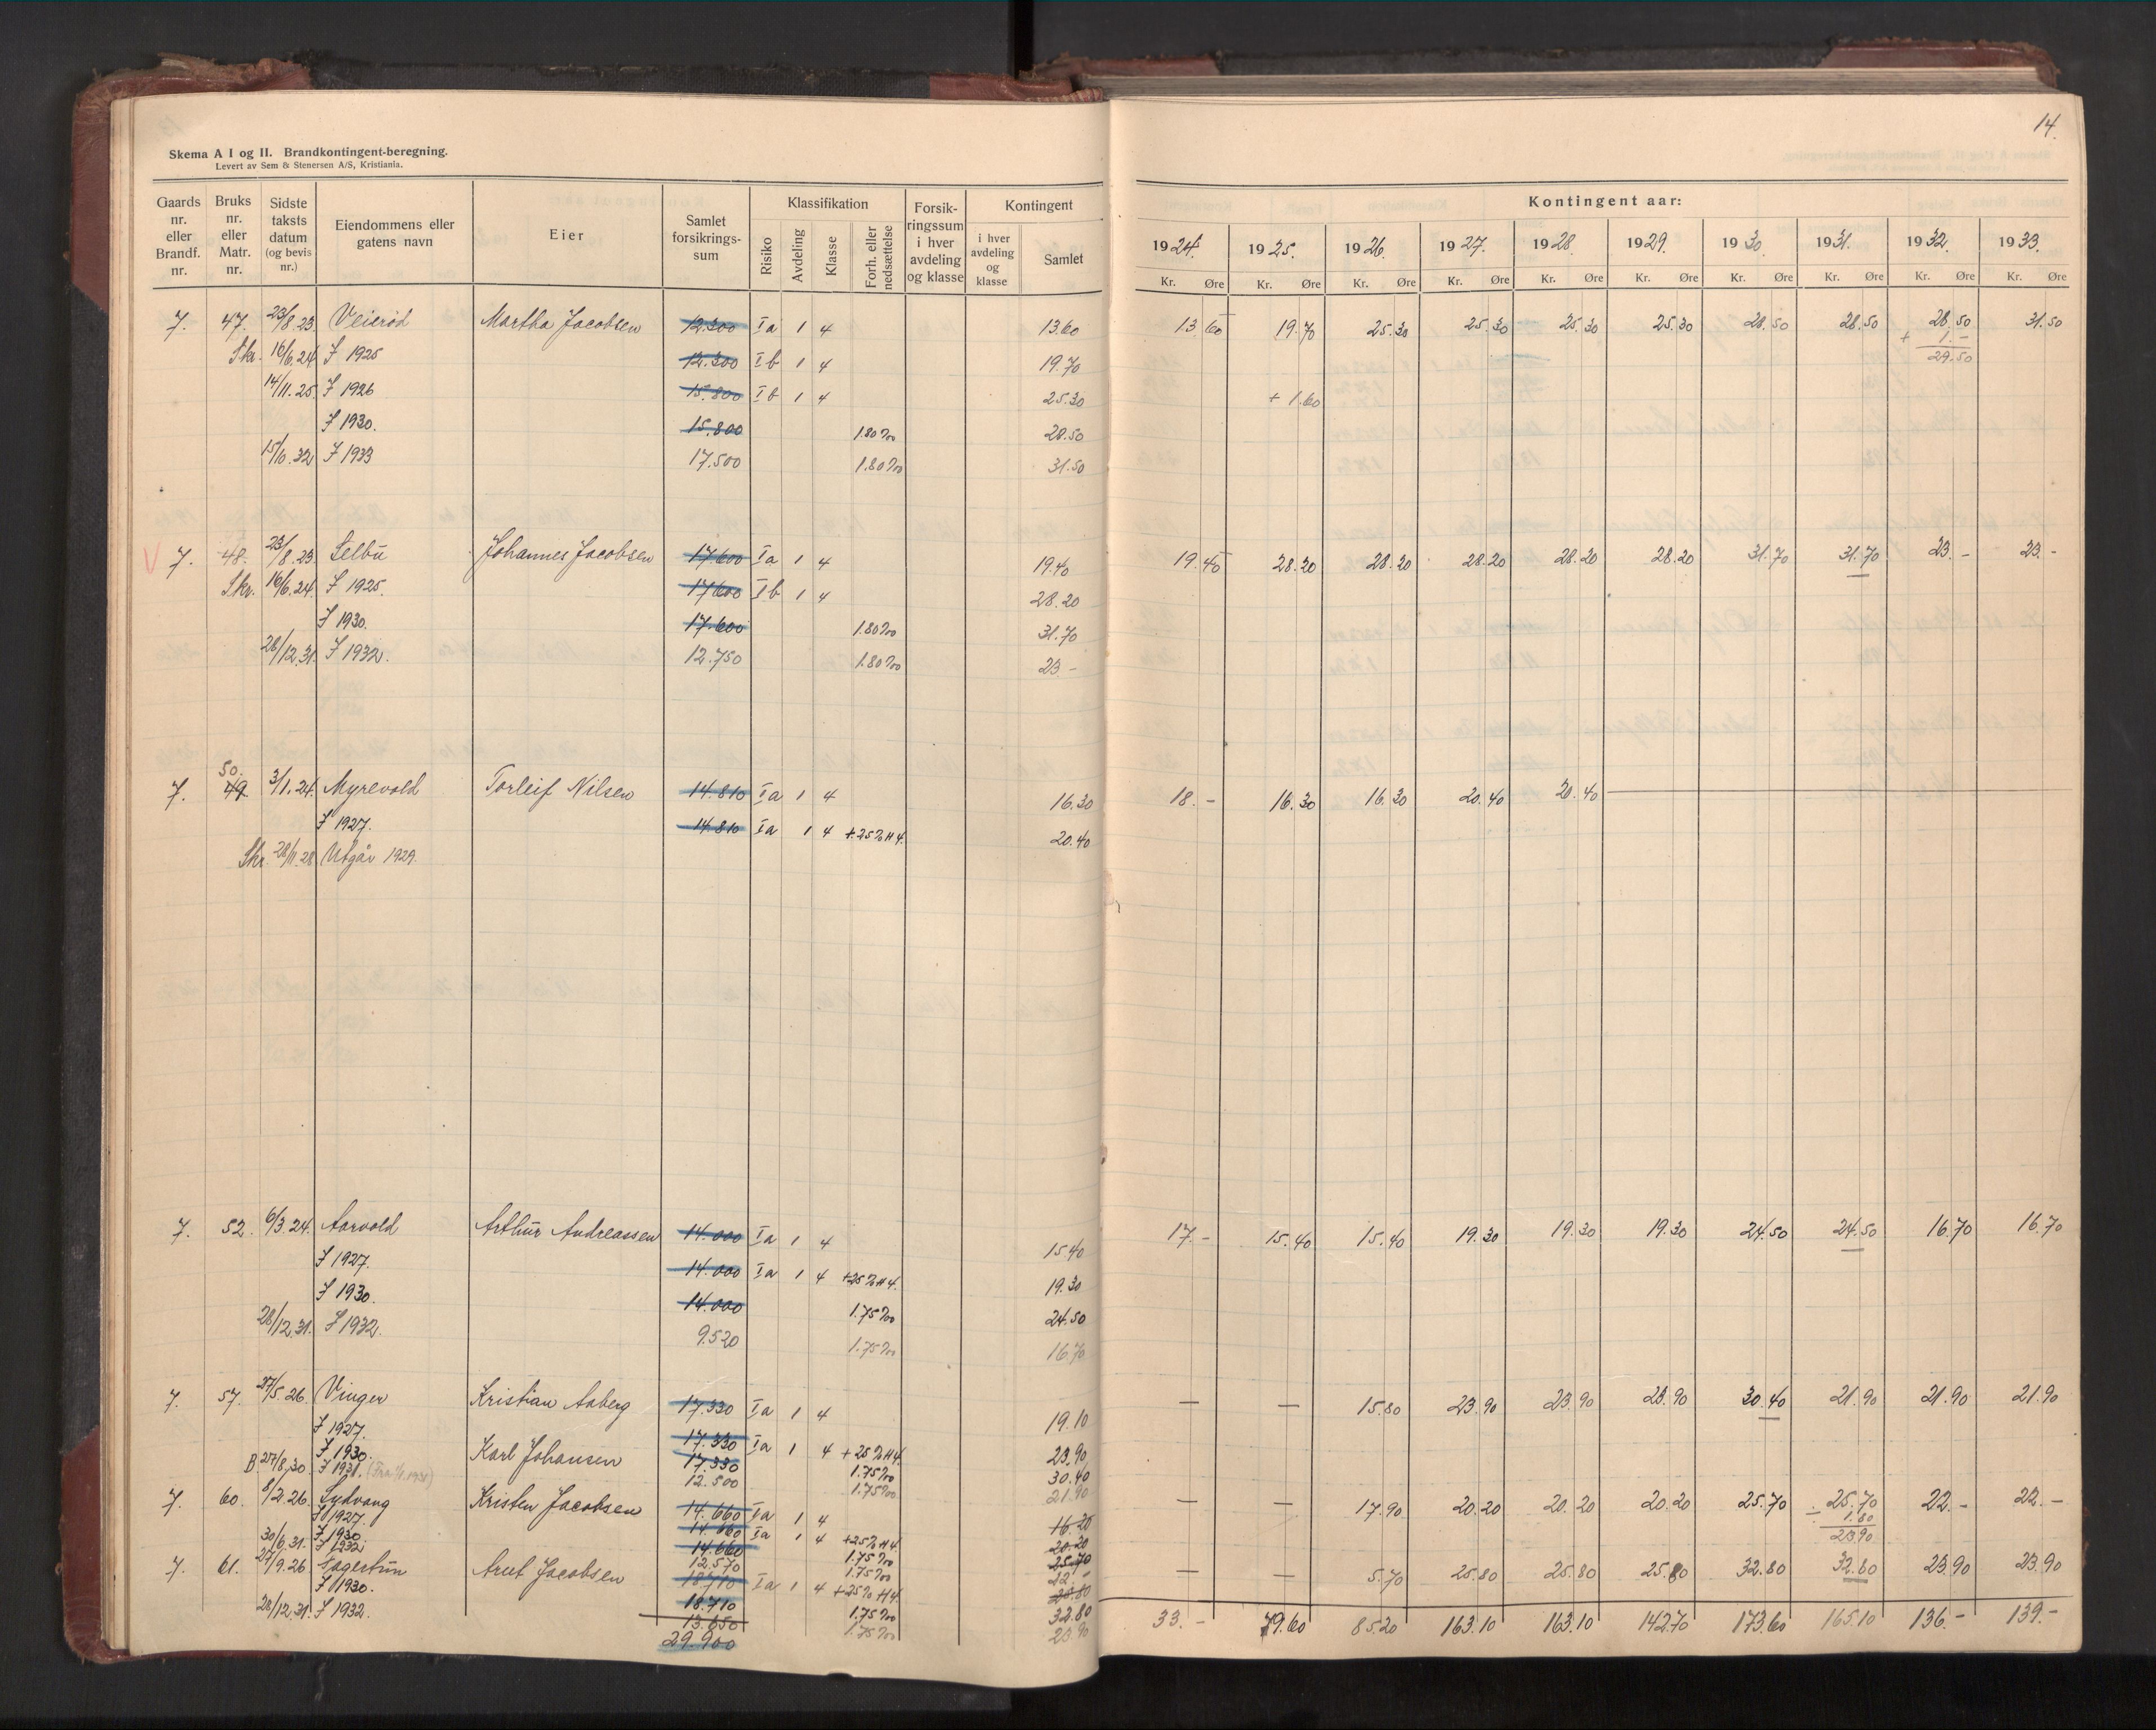 14.
Skema A I og II. Brandkontingent-beregning.
Levert av Sem & Stenersen A/S, Kristiania.
Gaards nr. eller Brandf. nr.
Bruks nr. eller Matr. nr.
Sidste taksts datum (og bevis nr.)
Eiendommens eller gatens navn
Eier
Samlet forsikrings-sum
Klassifikation
Risiko
Avdeling
Klasse
Forh. eller nedsættelse
Forsik-ringssum i hver avdeling og klasse
Kontingent
i hver avdeling og klasse
Samlet
Kontingent aar:
1924. 1925. 1926. 1927. 1928. 1929. 1930. 1931. 1932. 1933.
Kr. Øre Kr. Øre Kr. Øre Kr. Øre Kr. Øre Kr. Øre Kr. Øre Kr. Øre Kr. Øre Kr. Øre
7. 47. 23/8.23. Veierød Martha Jacobsen 12.300 Ia 1 4 13.60 13.60 19.70 25.30 25.30 25.30 25.30 28.50 28.50 28.50 31.50
+ 1.-
29.50
Skr. 16/6.24 F 1925 12.300 Ib 1 4 19.70
14/11.25 F 1926 15.800 Ib 1 4 25.30 + 1.60
F 1930. 15.800 1.80‰ 28.50
15/6.32 F 1933 17.500 1.80‰ 31.50
V 7. 48. 23/8.23 Selbu Johannes Jacobsen 17.600 Ia 1 4 19.40 19.40 28.20 28.20 28.20 28.20 28.20 31.70 31.70 23.- 23.-
Skr. 16/6.24. F 1925. 17.600 Ib 1 4 28.20
F 1930. 17.600 1.80‰ 31.70
28/12.31. F 1932. 12.750 1.80‰ 23-
50.
7. 49. 3/1.24. Myrevold Torleif Nilsen 14.810 Ia 1 4 16.30 18.- 16.30 16.30 20.40 20.40
F 1927. 14.810 Ia 1 4 +25% H4. 20.40
Skr. 28/11.28 Utgår 1929.
7. 52. 6/3.24. Aarvold Arthur Andreassen 14.000 Ia 1 4 15.40 17.- 15.40 15.40 19.30 19.30 19.30 24.50 24.50 16.70 16.70
F 1927. 14.000 Ia 1 4 +25% H4. 19.30
F 1930. 14.000 1.75‰ 24.50
28/12.31. F 1932. 9.520 1.75‰ 16.70
7. 57. 27/5.26 Vinger Kristian Aaberg 17.330 Ia 1 4 19.10 - - 15.80 23.90 23.90 23.90 30.40 21.90 21.90 21.90
F 1927. 17.330 Ia 1 4 +25% H4. 23.90
F 1930. Karl Johansen 17.330 1.75‰ 30.40
B. 27/8.30 F 1931. (Fra 1/1.1931) 12.500 1.75‰ 21.90
7. 60. 8/2.26. Sydvang Kristen Jacobsen 14.660 Ia 1 4 16.20 - - 17.90 20.20 20.20 20.20 25.70 25.70 22.- 22.-
÷ 1.80
23.90
F 1927. 14.660 Ia 1 4 +25% H4 20.20
F 1930 14.660 1.75‰ 25.70
30/6.31. F 1932. 12.570 1.75‰ 22-
7. 61. 27/9.26 Hagestun Arut Jacobsen 18.710 Ia 1 4 +25% H4. 25.80 - - 5.70 25.80 25.80 25.80 32.80 32.80 23.90 23.90
F 1930. 18.710 1.75‰ 32.80
28/12.31. F 1932. 13.650 1.75‰ 23.90
29.900
33.- 79.60 85.20 163.10 163.10 142.70 173.60 165.10 136.- 139.-